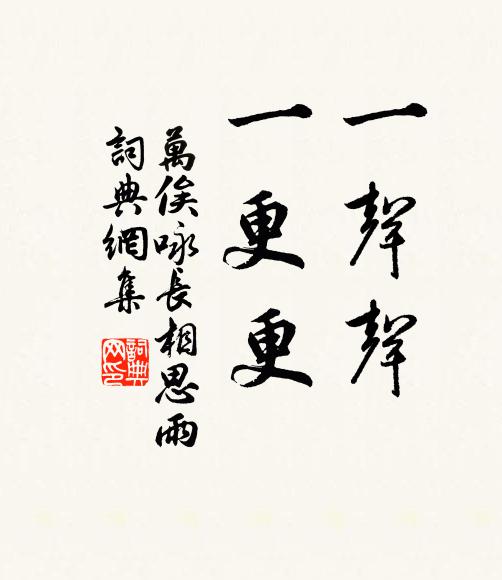 一聲聲
一更更
萬俟咏長相思雨
詞典網集
詞典网印